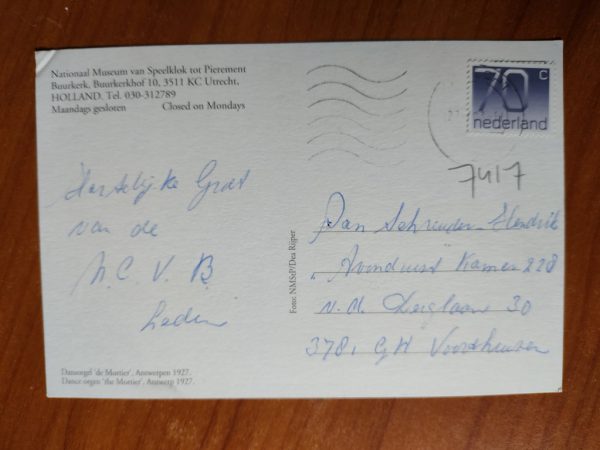 Nationaal Museum van Speelklok tot Pierement
Buurkerk, Buurkerkhof 10, 3511 KC Utrecht,
HOLLAND. Tel. 030-312789
Maandags gesloten Closed on Mondays
70 c
nederland
7417
Hartelijke Groet
van de
N.C.V.B.
Leden
Foto: NMSsP/Dea Rijper
Schreuder-Hendrik
Avondrust Kamer 228
v.d. 30
3781 GH Voorthuizen
Dansorgel 'de Mortier', Antwerpen 1927.
Dance organ 'the Mortier', Antwerp 1927.